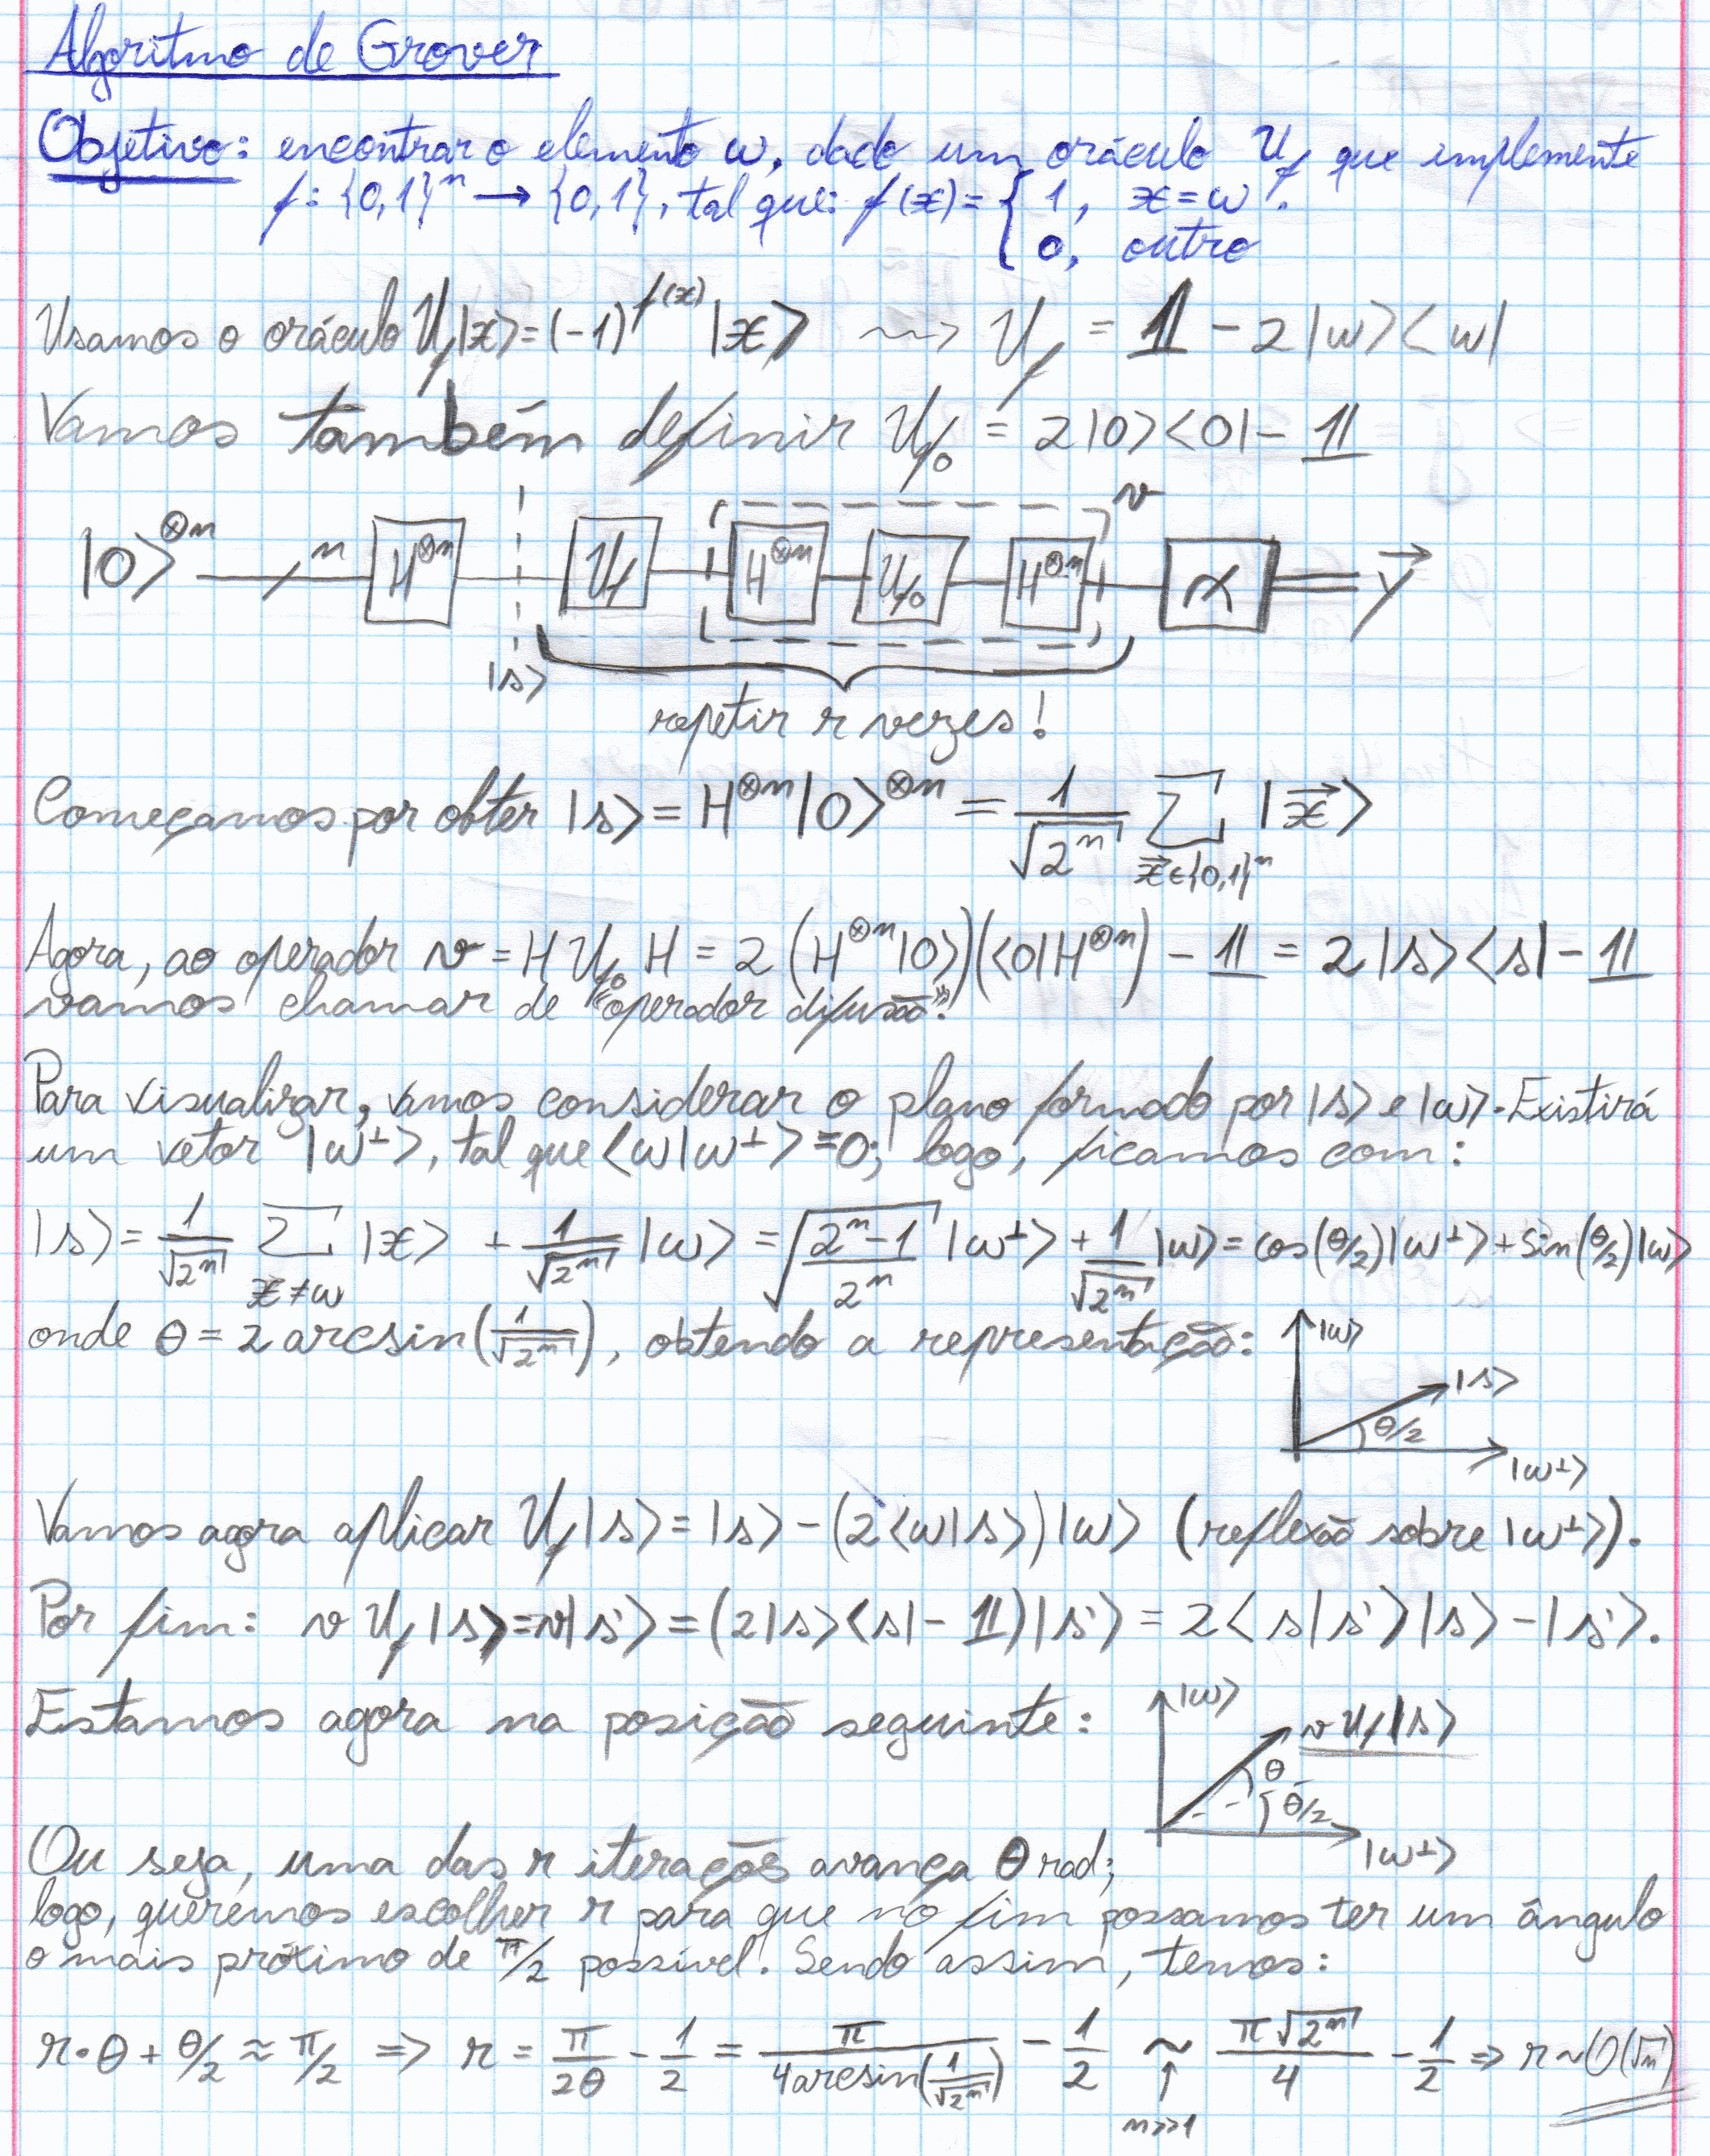 Algoritmo de Grover
Objetivo: encontrar o elemento ω, dado um oráculo U_f que implemente
f: {0,1}^n → {0,1}, tal que: f(x) = { 1, x = ω .
0, outro
Usamos o oráculo U_f|x> = (-1)^f(x) |x> ~~> U_f = 𝟙 - 2|ω><ω|
Vamos também definir U_f₀ = 2|0><0| - 𝟙
v
|0>^⊗n n H^⊗n U_f H^⊗n U_f₀ H^⊗n y⃗
|s>
repetir r vezes!
Começamos por obter |s> = H^⊗n |0>^⊗n = 1/√2^n Σ_{x⃗∈{0,1}^n} |x⃗>
Agora, ao operador v = H U_f₀ H = 2 (H^⊗n |0>)(<0|H^⊗n) - 𝟙 = 2|s><s| - 𝟙
vamos chamar de "operador difusão".
Para visualizar, vamos considerar o plano formado por |s> e |ω>. Existirá
um vetor |ω^⊥>, tal que <ω|ω^⊥> = 0; logo, ficamos com:
|s> = 1/√2^n Σ_{x≠ω} |x> + 1/√2^n |ω> = √((2^n-1)/2^n) |ω^⊥> + 1/√2^n |ω> = cos(θ/2)|ω^⊥> + sin(θ/2)|ω>
onde θ = 2 arcsin(1/√2^n), obtendo a representação:
|ω>
|s>
θ/2
|ω^⊥>
Vamos agora aplicar U_f|s> = |s> - (2<ω|s>)|ω> (reflexão sobre |ω^⊥>).
Por fim: v U_f|s> = v|s'> = (2|s><s| - 𝟙)|s'> = 2<s|s'>|s> - |s'>.
Estamos agora na posição seguinte:
|ω>
v U_f|s>
θ
θ/2
|ω^⊥>
Ou seja, uma das r iterações avança θ rad;
logo, queremos escolher r para que no fim possamos ter um ângulo
o mais próximo de π/2 possível. Sendo assim, temos:
r·θ + θ/2 ≈ π/2 => r = π/2θ - 1/2 = π/(4 arcsin(1/√2^n)) - 1/2 ~ π√2^n/4 - 1/2 => r ~ O(√n)
↑
n>>1